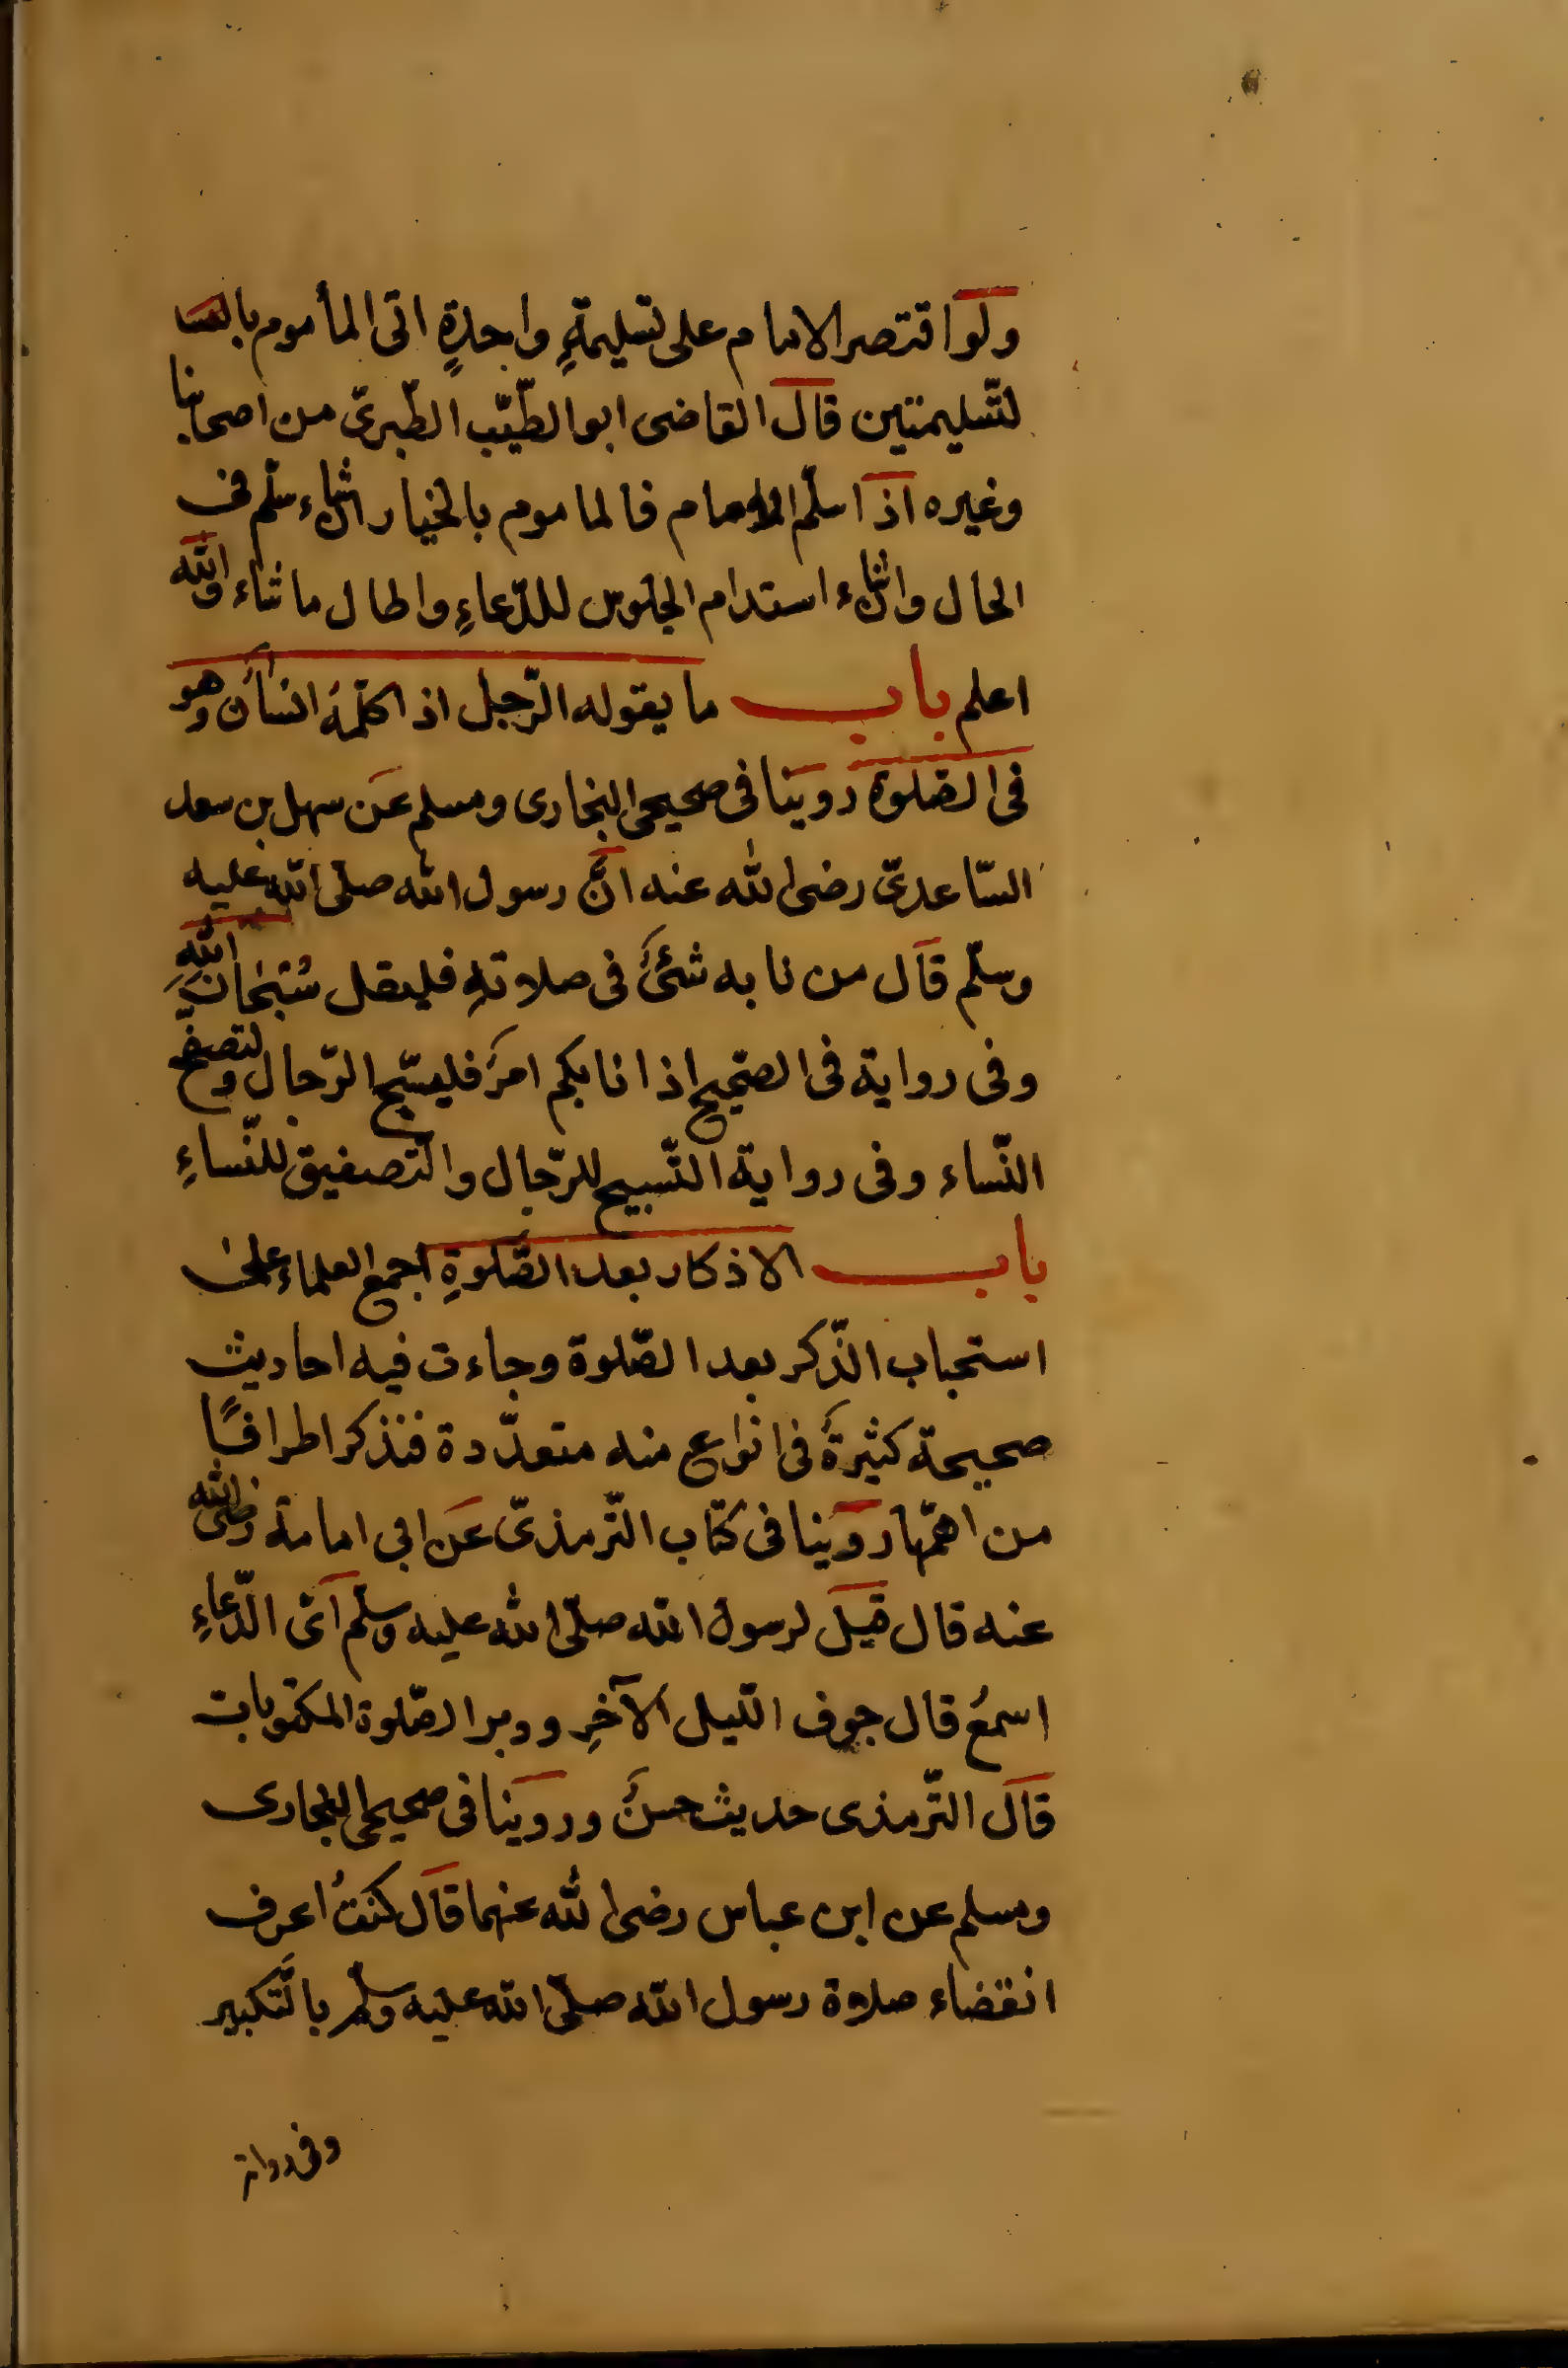 ولو اقتصر الامام على تسليمةٍ واحدةٍ اتى المأموم
لتّسليمتين قال القاضى ابو الطّيّب الطّبرىّ من اصحابنا
وغيره اذا سلّم الامام فالماموم بالخيار ان شاء سلّم فى
الحال وان شاء استدام الجلوس للدّعاءِ واطال ما شاء والله
اعلم باب ما يقوله الرّجل اذا كلّمهُ انسانٌ وهو
فى الصّلوة روينا فى صحيحى البخارى ومسلم عن سهل بن سعد
السّاعدىّ رضى الله عنه انّ رسول الله صلى الله عليه
وسلّم قال من نابه شئٌ فى صلاتهِ فليقل سُبْحَانَ اللهِ
وفى رواية فى الصّحيح اذا نابكم امرٌ فليسبّح الرّجال ولتصفّح
النّساء وفى رواية التّسبيح للرّجال والتّصفيق للنّساءِ
باب الاذكار بعد الصّلوةِ اجمع العلماء على
استحباب الذّكر بعد الصّلوة وجاءت فيه احاديث
صحيحة كثيرةٌ فى انواع منه متعدّدة فنذكر اطرافًا
من اهمّها روينا فى كتاب التّرمذىّ عن ابى امامة رضى الله
عنه قال قيل لرسول الله صلّى الله عليه وسلّم اىّ الدّعاءِ
اسمعُ قال جوف اللّيل الآخرِ ودبر الصّلوة المكتوبات
قال التّرمذى حديث حسنٌ وروينا فى صحيحى البخارى
ومسلم عن ابن عباس رضى الله عنهما قال كنتُ اعرف
انقضاء صلاة رسول الله صلّى الله عليه وسلّم بالتّكبير
وفى رواية